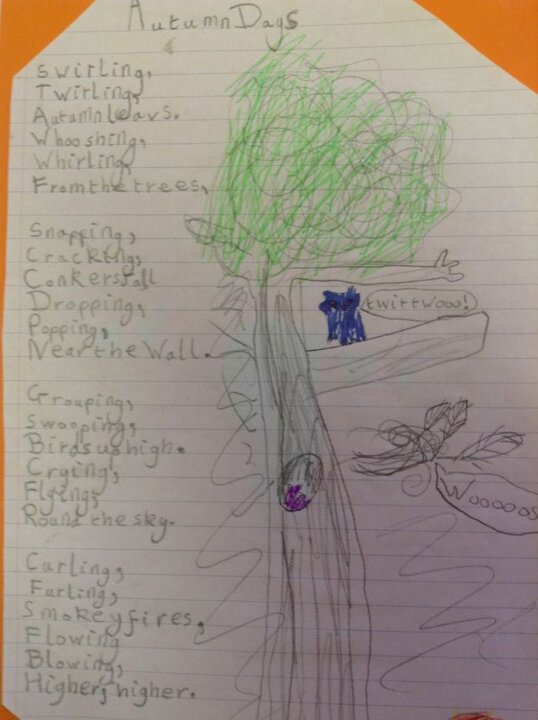 Autumn Days
Swirling,
Twirling,
Autumn leavs.
Whooshing,
Whirling,
From the trees,
Snapping,
Cracking,
Conkers fall
Dropping,
Popping,
Near the Wall.
twittwooo!
Grouping,
Swooping,
Birds us high.
Crying,
Flying,
Round the sky.
Wooooos
Curling,
Furling,
Smokey fires,
Flowing
Blowing,
Higher, higher.